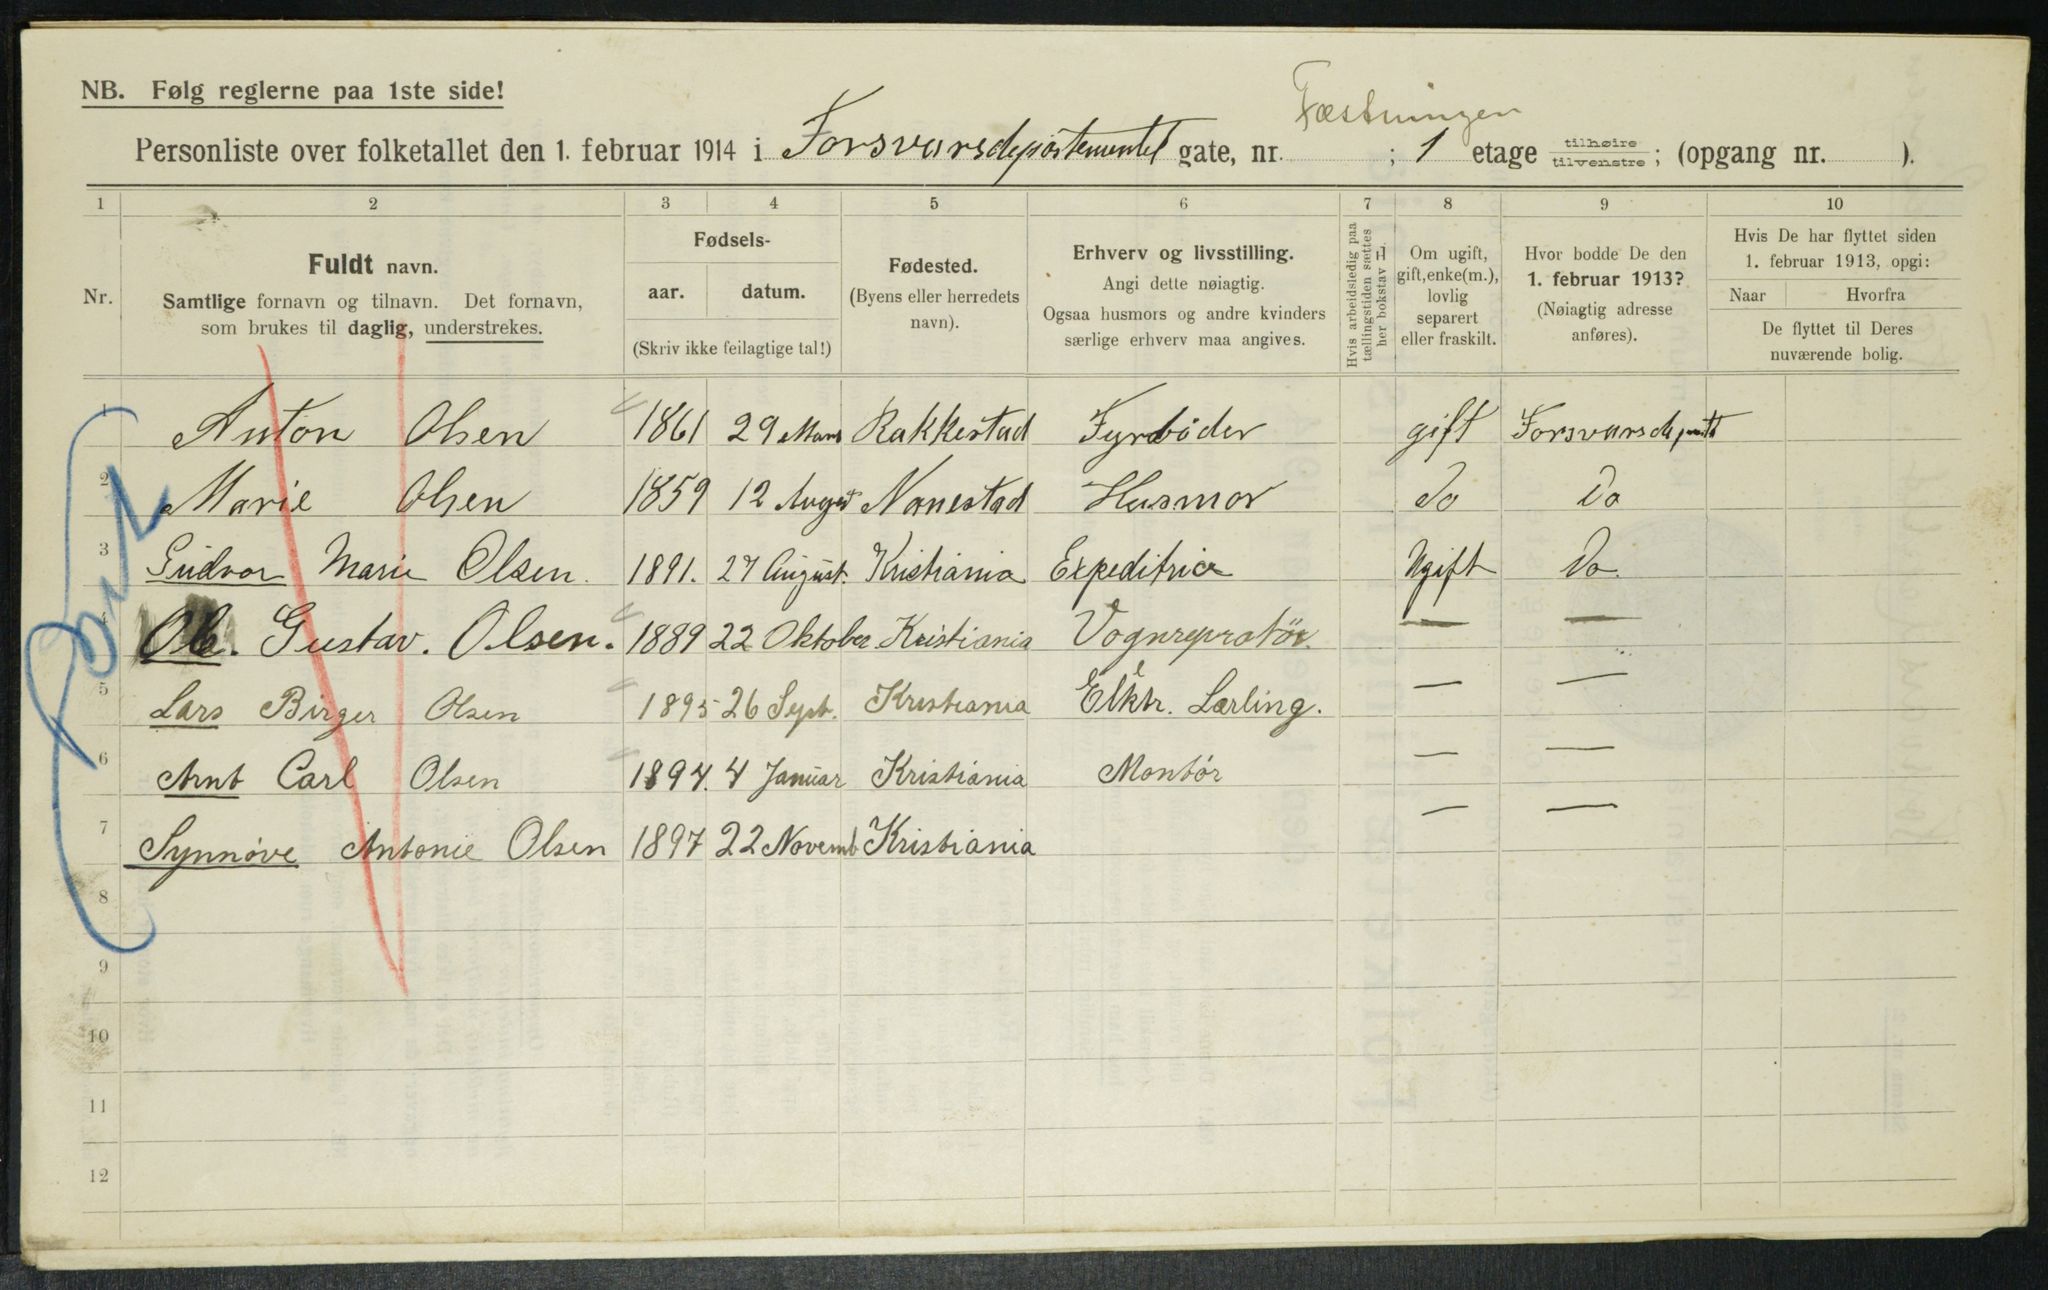 NB. Følg reglerne paa 1ste side!
Fæstningen
Personliste over folketallet den 1. februar 1914 i Forsvarsdepartementet gate, nr. ; 1 etage tilhøire tilvenstre; (opgang nr. ).
1 2 3 4 5 6 7 8 9 10
Nr.
Fuldt navn.
Samtlige fornavn og tilnavn. Det fornavn,
som brukes til daglig, understrekes.
Fødsels-
aar. datum.
(Skriv ikke feilagtige tal!)
Fødested.
(Byens eller herredets
navn).
Erhverv og livsstilling.
Angi dette nøiagtig.
Ogsaa husmors og andre kvinders
særlige erhverv maa angives.
Hvis arbeidsledig paa
tællingstiden sættes
her bokstav L
Om ugift,
gift, enke(m.),
lovlig
separert
eller fraskilt.
Hvor bodde De den
1. februar 1913?
(Nøiagtig adresse
anføres).
Hvis De har flyttet siden
1. februar 1913, opgi:
Naar Hvorfra
De flyttet til Deres
nuværende bolig.
1 Anton Olsen 1861 29 Mars Rakkestad Fyrbøder gift Forsvarsdepmtt
2 Marie Olsen 1859 12 August Nanestad Husmor Do Do
3 Gudvor Marie Olsen. 1891. 27 August. Kristiania Expeditrice Ugift Do.
4 Ole. Gustav. Olsen. 1889 22 Oktober Kristiania Vognrepratör. — —
5 Lars Birger Olsen 1895 26 Sept. Kristiania Elektr. Lærling. — —
6 Arnt Carl Olsen 1894. 4 Januar Kristiania Montör — —
7 Synnøve Antonie Olsen 1897 22 Novemb Kristiania — —
8
9
10
11
12